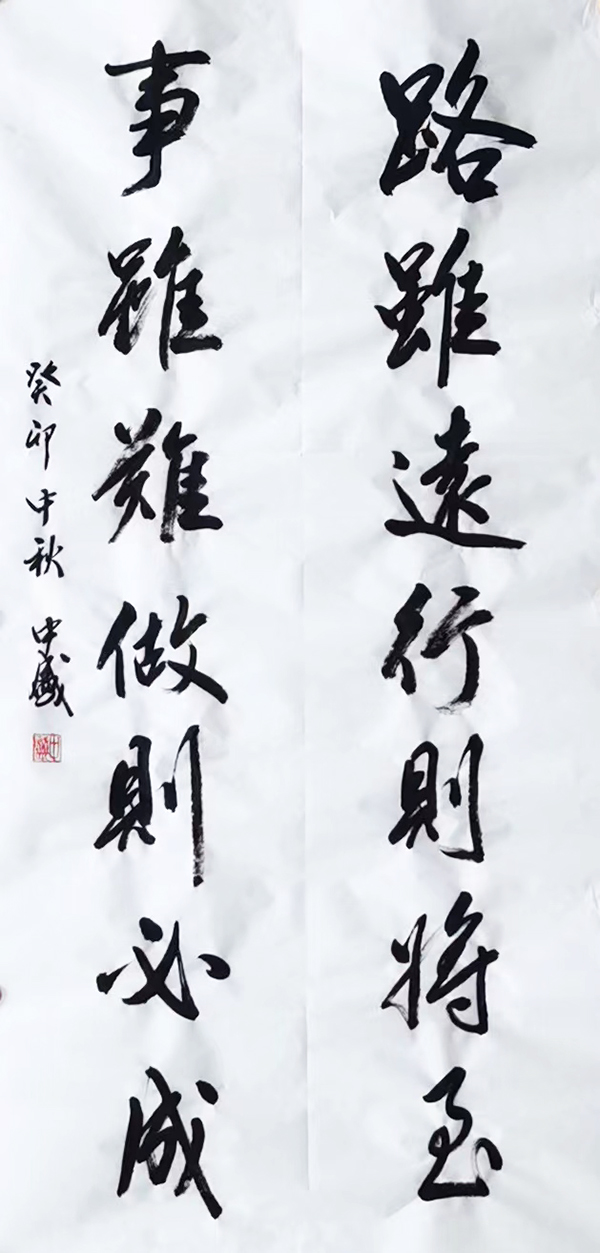 路雖遠行則將至
事雖難做則必成
癸卯中秋 中盛